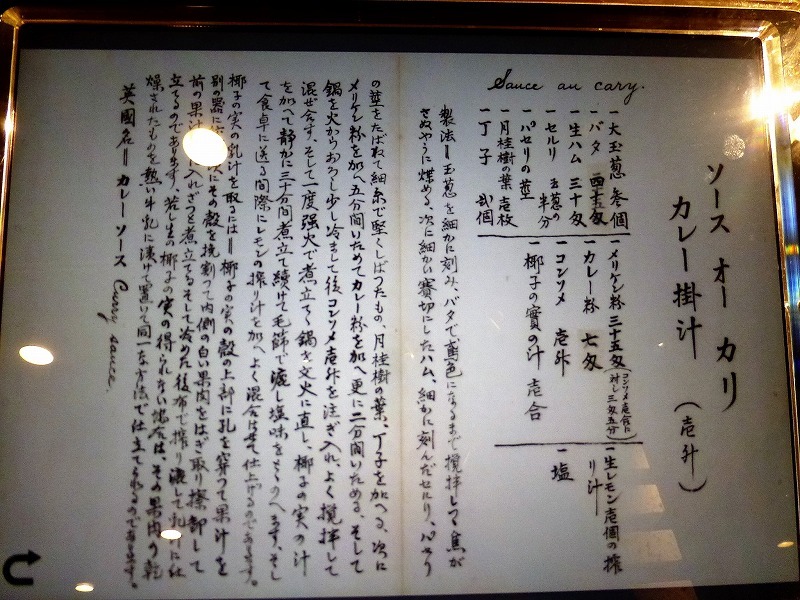 Sauce au cary.
ソース オー カリ
カレー掛汁（壱升）
一 大玉葱 参個
一 バタ 四十五匁
一 生ハム 三十匁
一 セルリ 玉葱の半分
一 パセリの莖
一 月桂樹の葉 壱枚
一 丁子 弐個
一 メリケン粉 三十五匁（コンソメ壱合に対し三匁五分）
一 カレー粉 七匁
一 コンソメ 壱升
一 椰子の實の汁 壱合
一 生レモン壱個の搾り汁
一 塩
製法＝玉葱を細かに刻み、バタで鳶色になるまで攪拌しつゝ焦が
さぬやうに煠める、次に細かい賽切にしたハム、細かに刻んだセルリ、パセリ
の莖をたばねて細糸で堅くしばつたもの、月桂樹の葉、丁子を加へる、次に
メリケン粉を加へ五分間いためてカレー粉を加へ更に二分間いためる、そして
鍋を火からおろし少し冷まして後コンソメ壱升を注ぎ入れ、よく攪拌して
混ぜ合す、そして一度強火で煮立てゝ鍋を文火に直し、椰子の実の汁
を加へて静かに三十分間煮立て続けて毛篩で漉し塩味をとゝのへます、そし
て食卓に送る間際にレモンの搾り汁を加へよく混合はせて仕上げるのであります。
椰子の実の乳汁を取るには＝椰子の実の殻の上部に孔を穿つて果汁を
別の器に 次にその殻を挽割つて内側の白い果肉をはぎ取り擦卸して
前の果汁 入れざつと煮立てるそして冷めた後布で搾り漉して乳 に仕
立てるのであります、若し生の椰子の実の得られない場合は、その果肉の乾
燥されたものを熱い牛乳に漬けて置いて同一な方法で仕立てられるのであります。
英國名＝カレーソース Curry sauce.